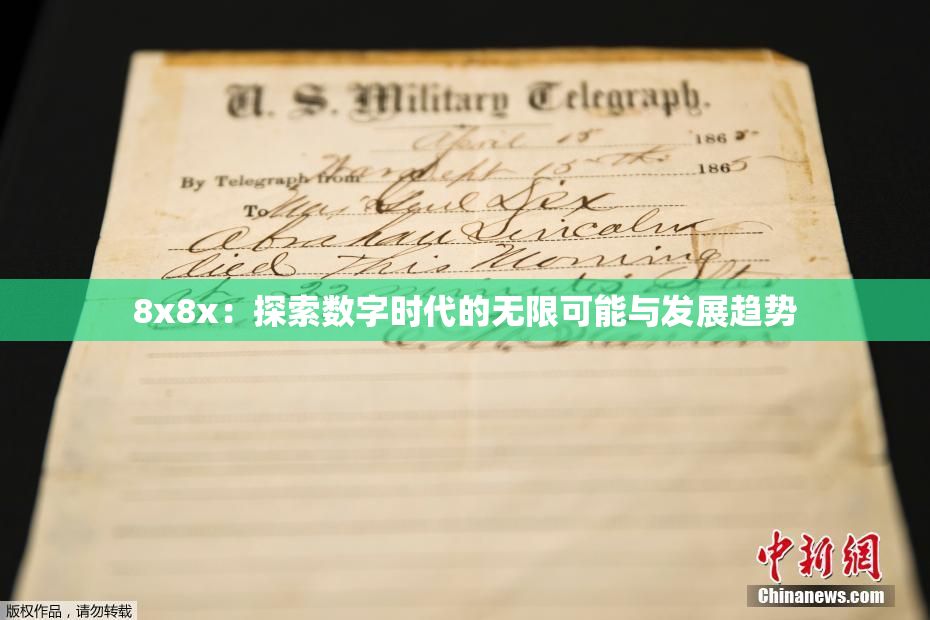 U. S. Military Telegraph.
April 15 1865
By Telegraph from War Dept 15th 1865
To Maj Genl Dix
Abraham Lincoln
died This Morning
at 22 minutes after
8x8x：探索数字时代的无限可能与发展趋势
E. M. Stanton
中新网
Chinanews.com
版权作品，请勿转载